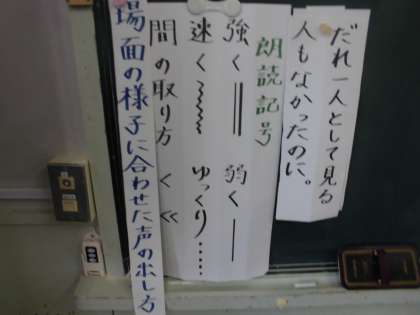 だれ一人として見る
人もなかったのに。
朗読記号
強く 弱く
速く ゆっくり……
間の取り方 く くく
場面の様子に合わせた声の出し方